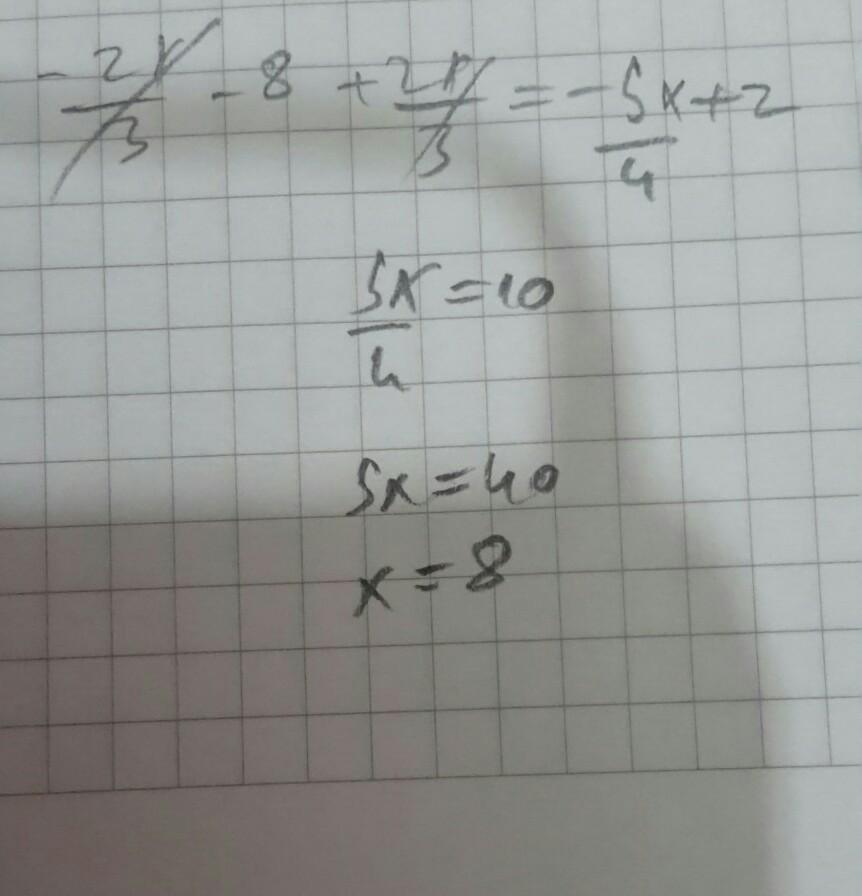 -2x/3 - 8 + 2x/3 = -5x/4 + 2
5x/4 = 10
5x = 40
x = 8